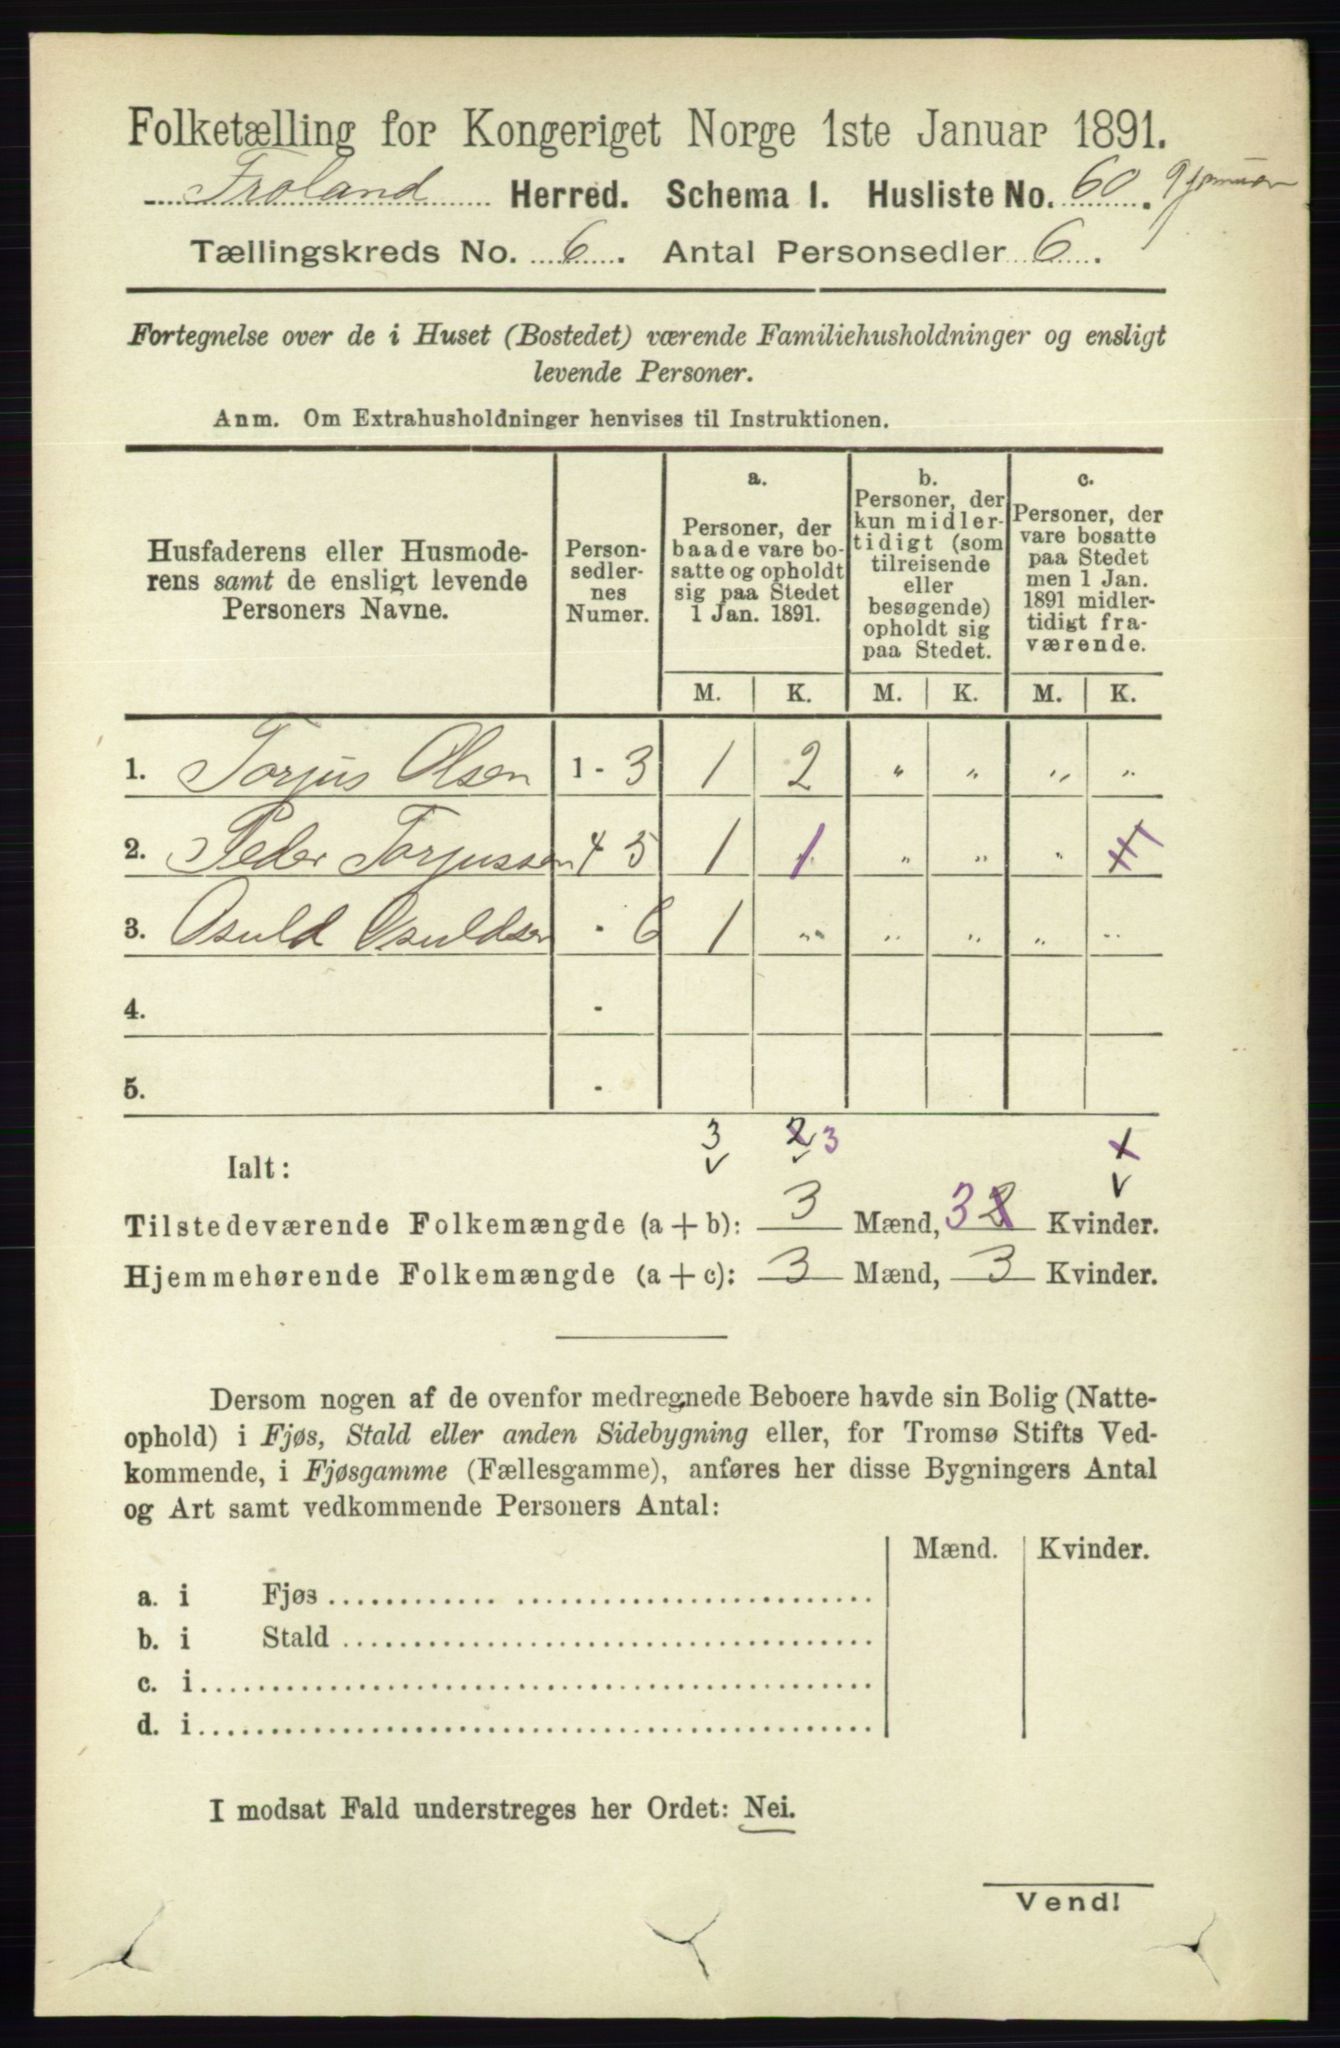 Folketælling for Kongeriget Norge 1ste Januar 1891.
Froland Herred. Schema 1. Husliste No. 60. 9 januar
Tællingskreds No. 6. Antal Personsedler 6.
Fortegnelse over de i Huset (Bostedet) værende Familiehusholdninger og ensligt
levende Personer.
Anm. Om Extrahusholdninger henvises til Instruktionen.
Husfaderens eller Husmode-
rens samt de ensligt levende
Personers Navne.
Person-
sedler-
nes
Numer.
a.
Personer, der
baade vare bo-
satte og opholdt
sig paa Stedet
1 Jan. 1891.
b.
Personer, der
kun midler-
tidigt (som
tilreisende
eller
besøgende)
opholdt sig
paa Stedet.
c.
Personer, der
vare bosatte
paa Stedet
men 1 Jan.
1891 midler-
tidigt fra-
værende.
M. K. M. K. M. K.
1. Torjus Olsen 1 - 3 1 2 " " " "
2. Peder Torjussen 4 5 1 1 " " "
3. Osuld Osuldsen - 6 1 " " " " "
4. -
5. -
Ialt: 3 2 3 1
Tilstedeværende Folkemængde (a + b): 3 Mænd, 3 2 Kvinder.
Hjemmehørende Folkemængde (a + c): 3 Mænd, 3 Kvinder.
Dersom nogen af de ovenfor medregnede Beboere havde sin Bolig (Natte-
ophold) i Fjøs, Stald eller anden Sidebygning eller, for Tromsø Stifts Ved-
kommende, i Fjøsgamme (Fællesgamme), anføres her disse Bygningers Antal
og Art samt vedkommende Personers Antal:
Mænd. Kvinder.
a. i Fjøs
b. i Stald
c. i
d. i
I modsat Fald understreges her Ordet: Nei.
Vend!